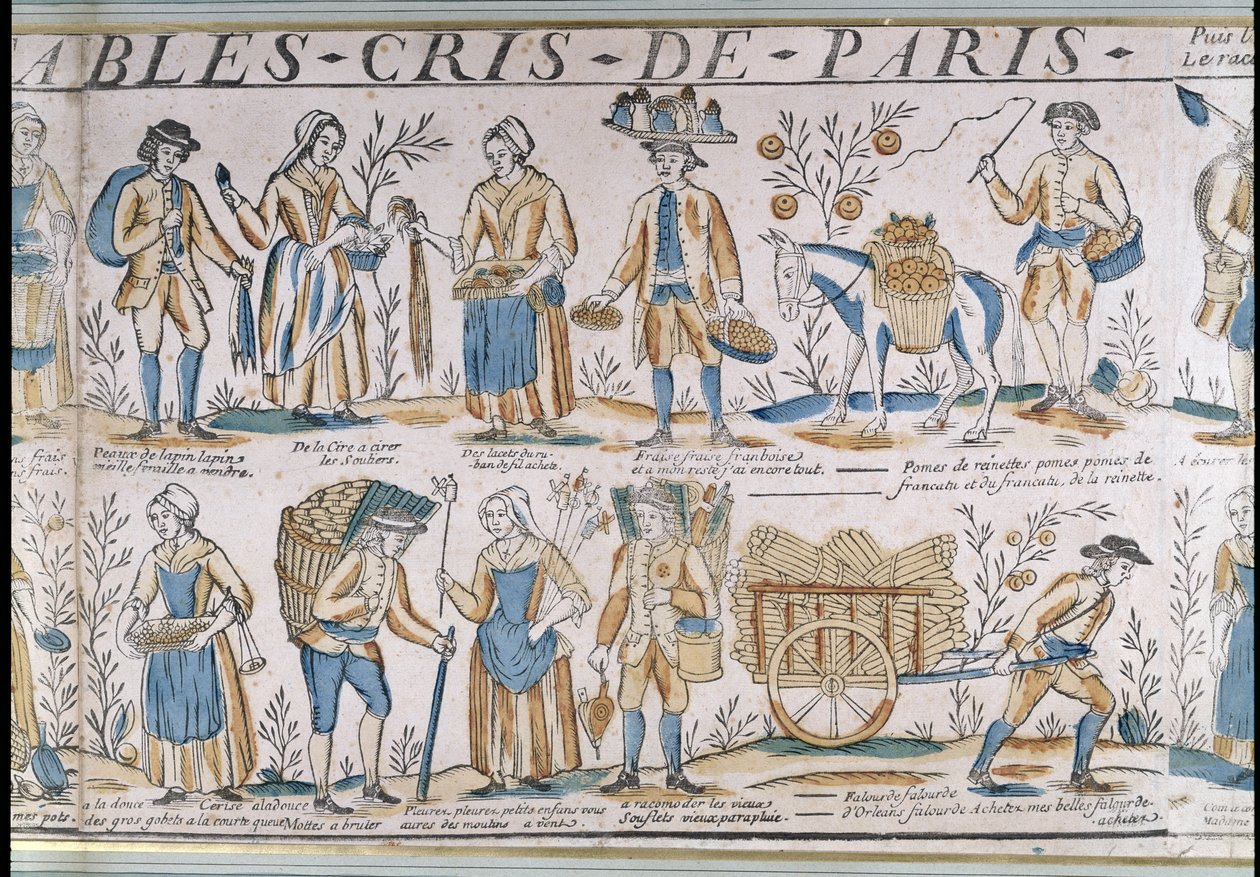 ABLES-CRIS-DE-PARIS-
Puis l'
Le rac
frais
frais.
Peaux de lapin lapin
vieille feraille a vendre.
De la Cire a cirer
les Souliers.
Des lacets du ru-
ban de fil achete.
Fraise fraise franboise
et a mon reste j'ai encore tout.
Pomes de reinettes pomes pomes de
francatu et du francatu, de la reinette.
A écurer les
mes pots.
a la douce Cerise a la douce
des gros gobets a la courte queue
Mottes a bruler
Pleurez pleurez petits enfans vous
aures des moulins a vent.
a racomoder les vieux
Souflets vieux parapluie.
Falourde falourde
d'Orleans falourde Achetez mes belles falourde.
acheter.
Madame